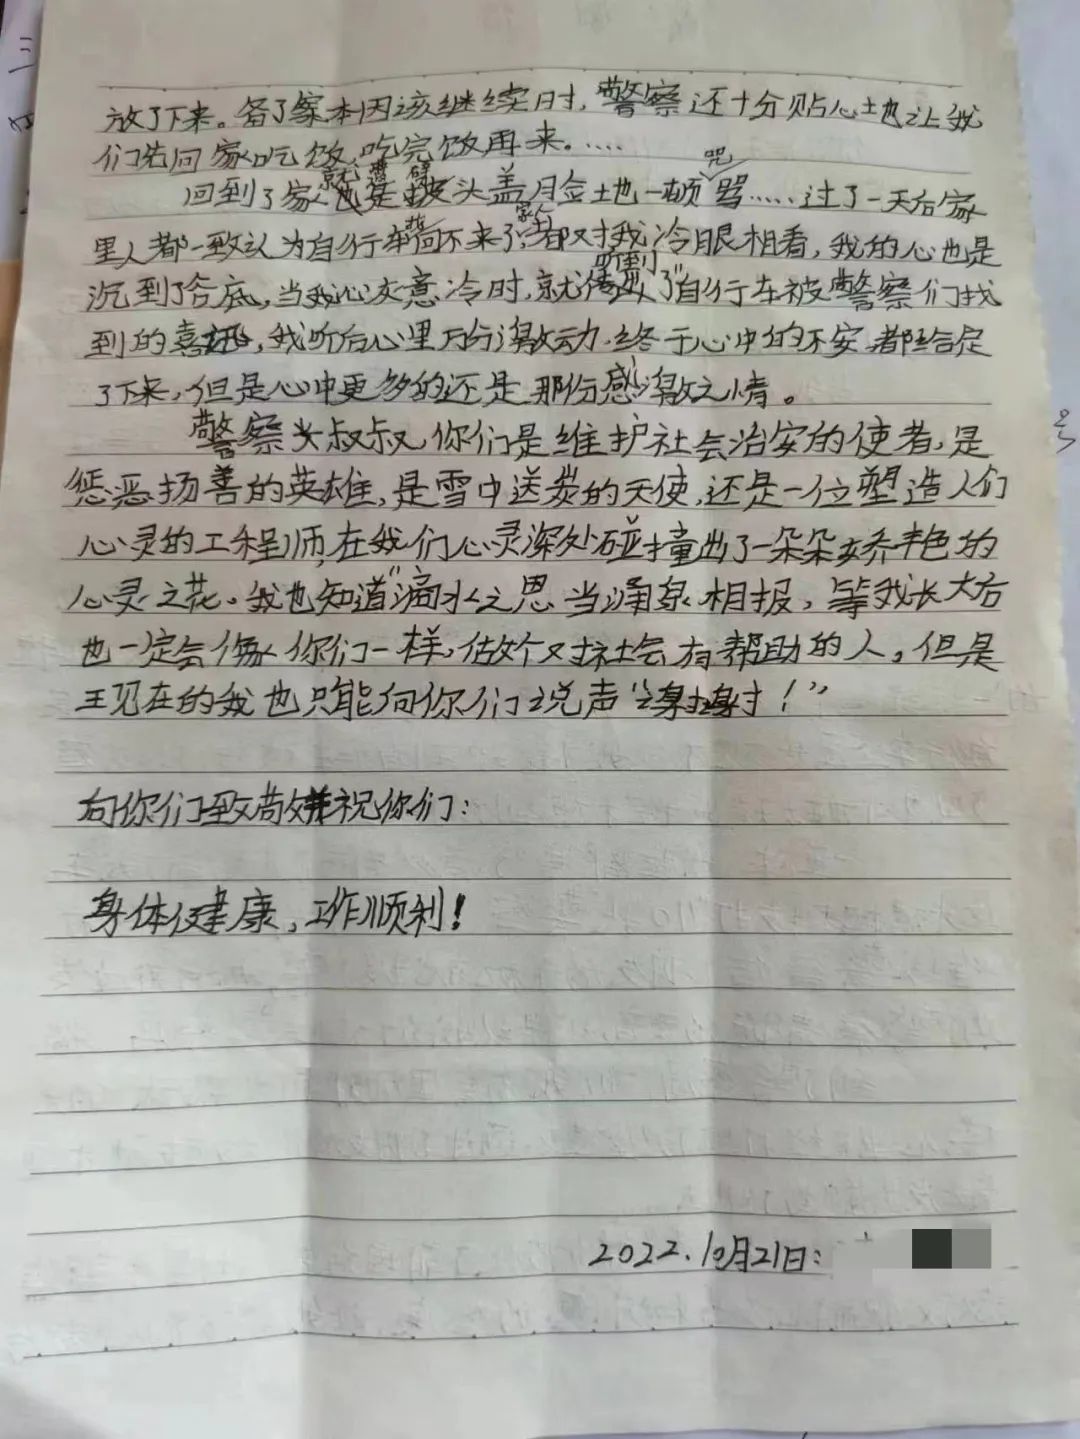 放了下来。备了案本因该继续时，警察还十分贴心地让我
们先回家吃饭，吃完饭再来。……
回到了家就遭劈头盖脸地一顿咒骂……过了一天后家
里人都一致认为自行车找不来了，家人都对我冷眼相看，我的心也是
沉到了谷底，当我心灰意冷时，就听到了"自行车被警察们找
到的喜讯，我听后心里万分激动，终于心中的不安都给定
了下来，但是心中更多的还是那份感激之情。
警察叔叔你们是维护社会治安的使者，是
惩恶扬善的英雄，是雪中送炭的天使，还是一位塑造人们
心灵的工程师，在我们心灵深处碰撞出了一朵朵奔丰色的
心灵之花。我也知道"滴水之恩当涌泉相报，等我长大后
也一定会像你们一样，做个对社会有帮助的人，但是
现在的我也只能向你们说声"谢谢！"
向你们致敬并祝你们：
身体健康，工作顺利！
2022.10月21日：